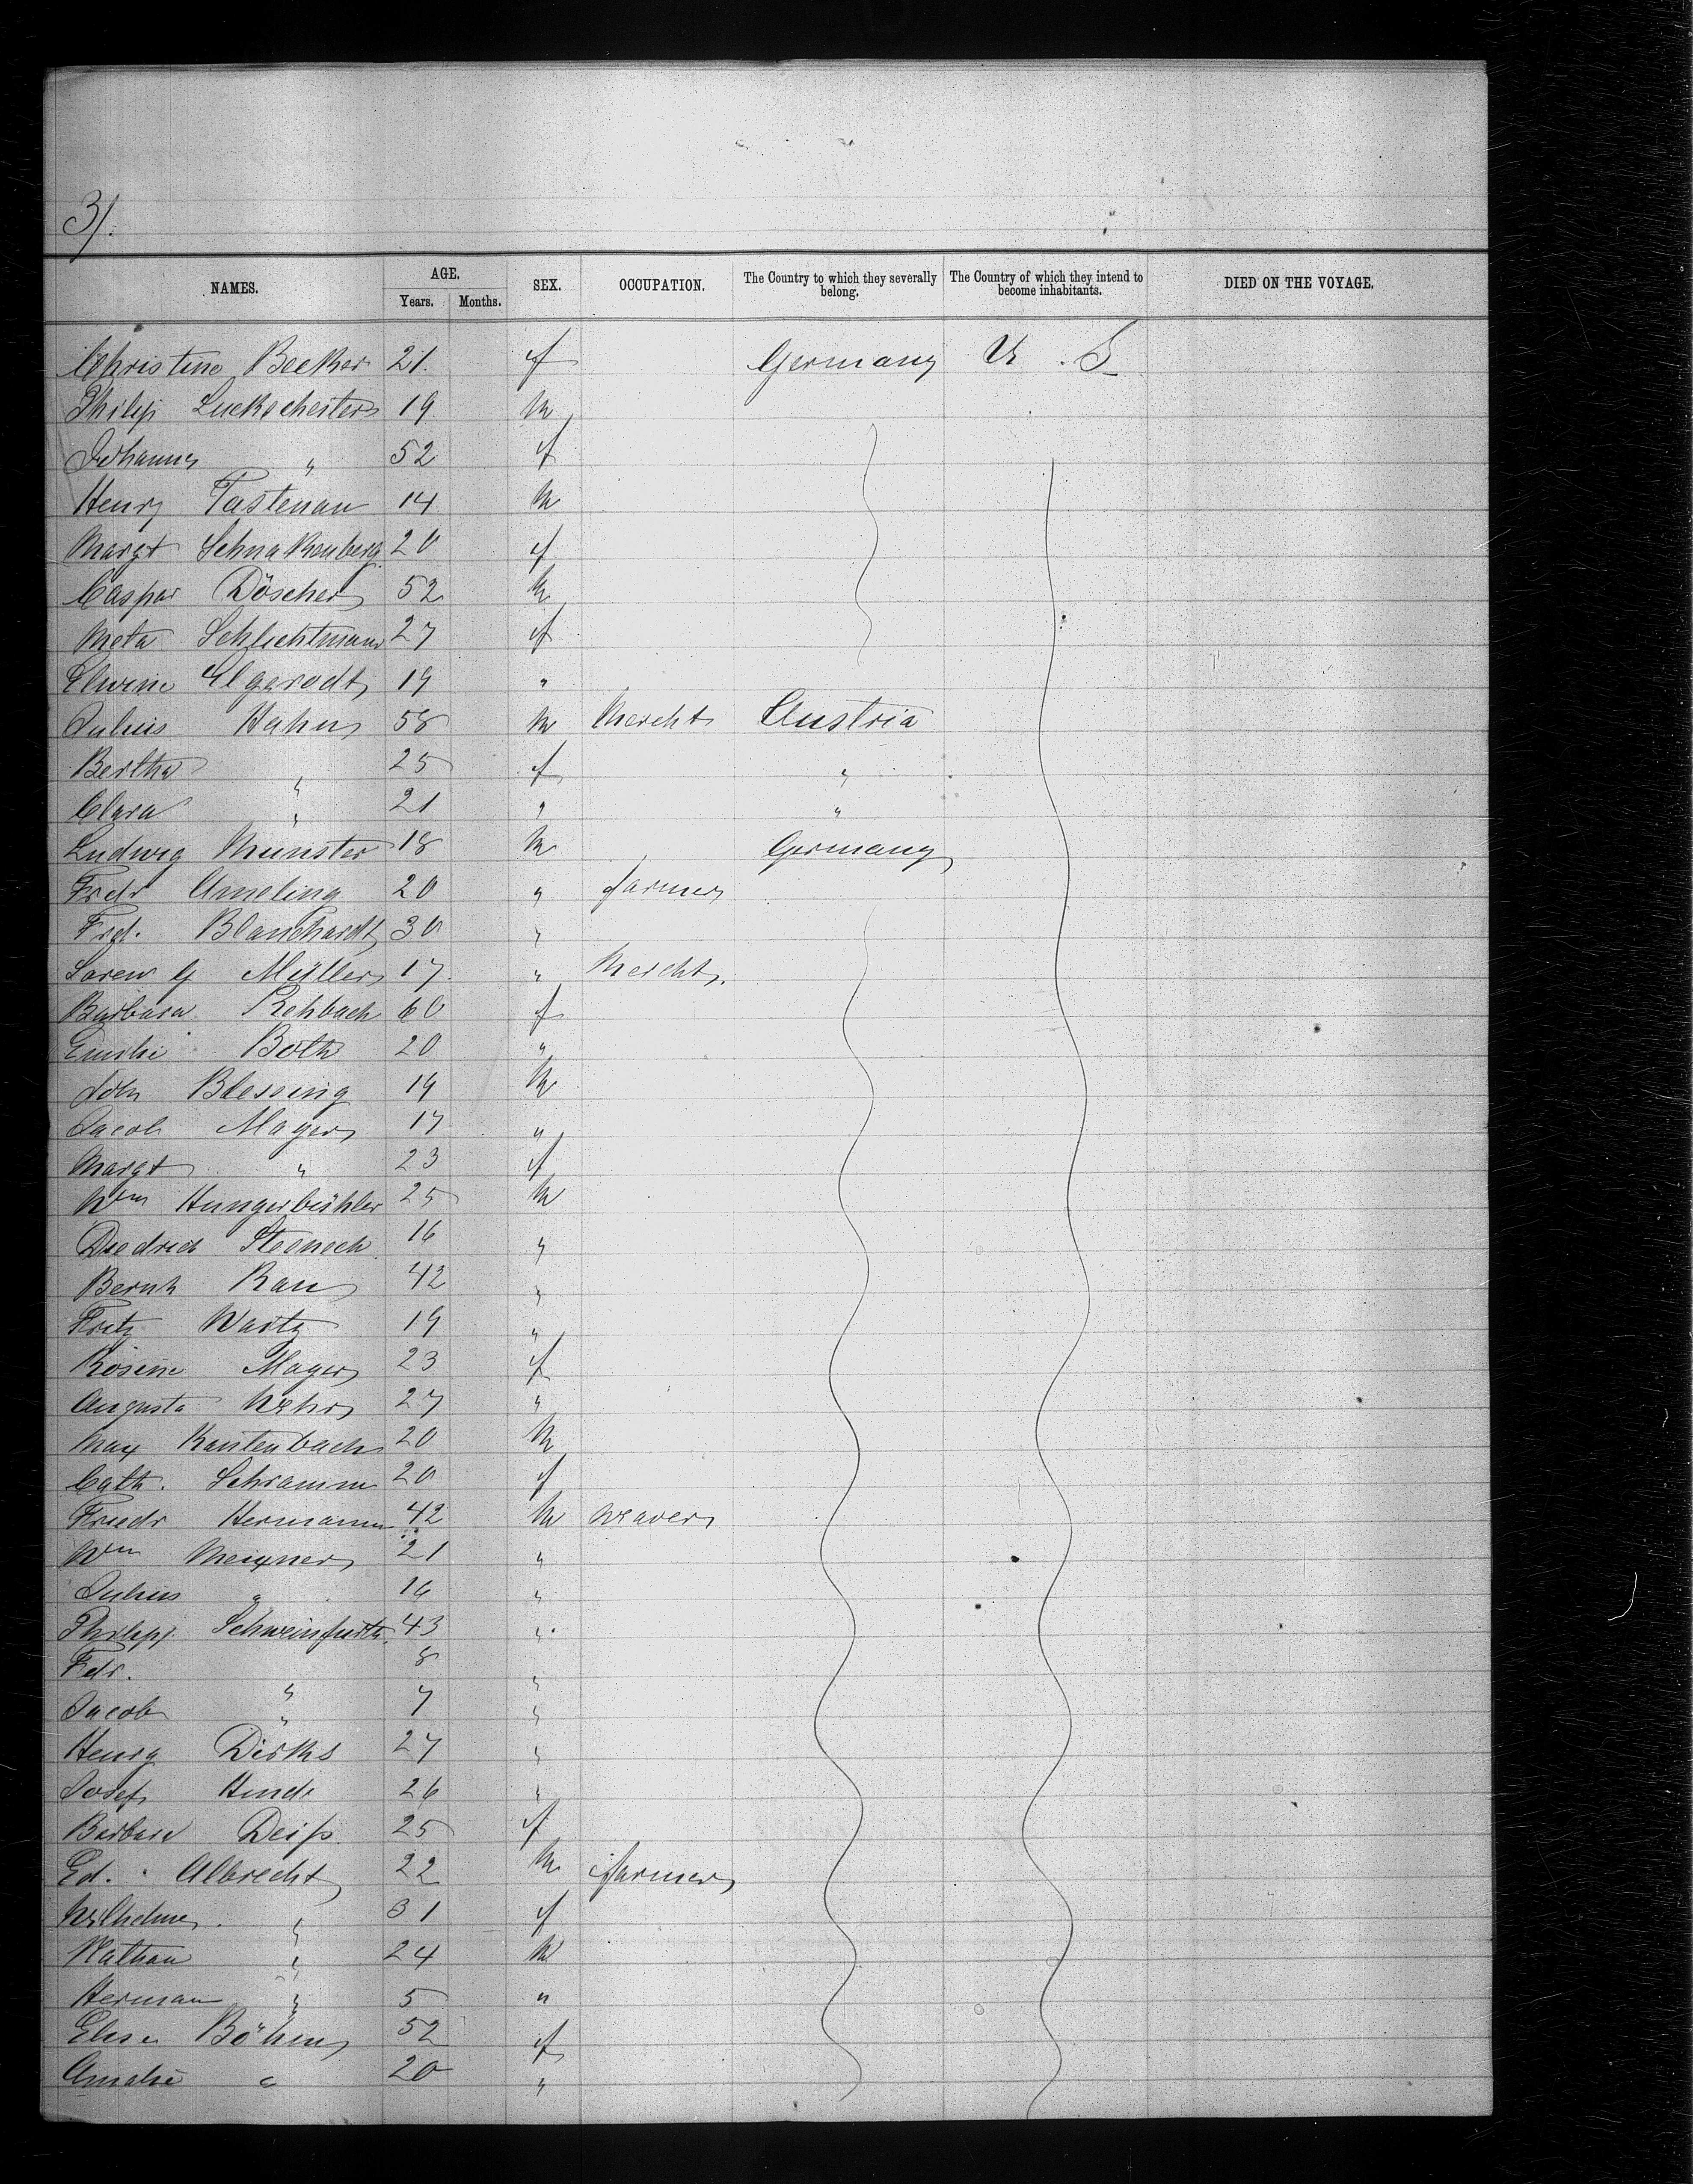 3/.
NAMES. AGE. SEX. OCCUPATION. The Country to which they severally belong. The Country of which they intend to become inhabitants. DIED ON THE VOYAGE.
Years. Months.
Christine Becker 21. f Germany U. S.
Philip 19 m
Johanna " 52 f
Henry Tastenau 14 m
Margt Schnakenberg 20 f
Caspar Döscher 52 m
Meta Schlichtmann 27 f
Elwine Elgerodt 19 "
Julius Hahn 58 m Mercht Austria
Bertha " 25 f "
Clara " 21 " "
Ludwig Münster 18 m Germany
Fredr Ameling 20 " farmer
Fred. Blanchardt 30 "
Soren G Müller 17. " Mercht.
Barbara Rehbach 60 f
Emilie Both 20 "
Joh Blessing 19 m
Jacob Mayer 17 "
Margt " 23 f
Wm Hungerbühler 25 m
Diedrich Steeneck 16 "
Bernh Rau 42 "
Fritz Wartz 19 "
Rosine Mayer 23 f
Augusta Wehr 27 "
Max Kautenbach 20 m
Cath. Schramm 20 f
Friedr Hermann 42 m weaver
Wm Meixner 21 "
Julius " 16 "
Philipp Schweinfurth. 43 "
Fdr. " 8 "
Jacob " 7 "
Henry Dirks 27 "
Josef Hinde 26 "
Barbara Deiß 25 f
Ed. Albrecht 22 m farmer
Wilhelme. " 31 f
Nathan " 24 m
Herman " 5 "
Elise Böhm 52 f
Amalie " 20 "